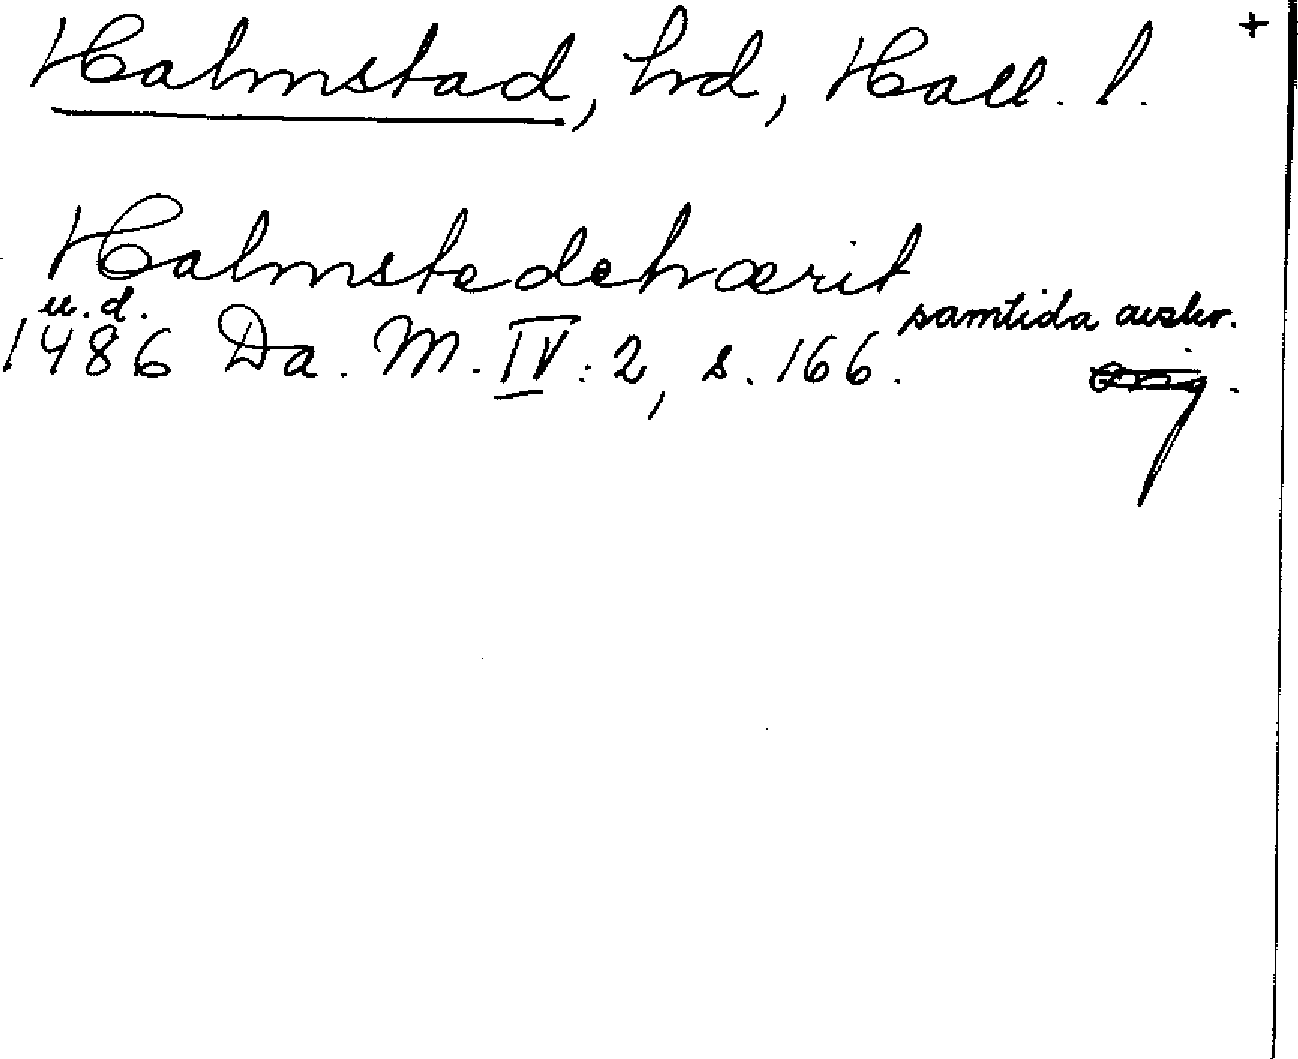 Halmstad, hd, Hall. l. +
Halmstedehærit
u.d. samtida avskr.
1486 Da. M. IV: 2, s. 166.